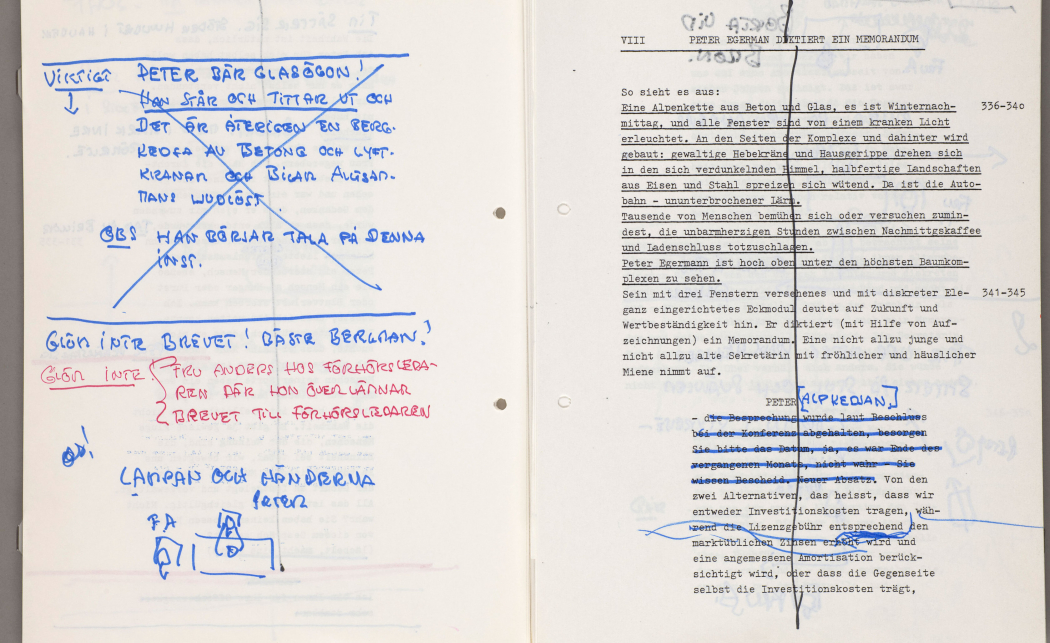 VIKTIGT PETER BÄR GLASÖGON!
HAN STÅR OCH TITTAR UT OCH
DET ÄR ÅTERIGEN EN BERG-
KEDJA AV BETONG OCH LYFT-
KRANAR OCH BILAR
OBS HAN BÖRJAR TALA PÅ DENNA
INST.
GLÖM INTE BREVET! BÄSTE BERGMAN!
GLÖM INTE! FRU ANDERS HOS FÖRHÖRSLEDA-
REN DÄR HON ÖVERLÄMNAR
BREVET TILL FÖRHÖRSLEDAREN
LAMPAN OCH HÄNDERNA
PETER
FA
VIII PETER EGERMAN DIKTIERT EIN MEMORANDUM
So sieht es aus:
Eine Alpenkette aus Beton und Glas, es ist Winternach- 336-340
mittag, und alle Fenster sind von einem kranken Licht
erleuchtet. An den Seiten der Komplexe und dahinter wird
gebaut: gewaltige Hebekräne und Hausgerippe drehen sich
in den sich verdunkelnden Himmel, halbfertige Landschaften
aus Eisen und Stahl spreizen sich wütend. Da ist die Auto-
bahn - ununterbrochener Lärm.
Tausende von Menschen bemühen sich oder versuchen zumin-
dest, die unbarmherzigen Stunden zwischen Nachmittgskaffee
und Ladenschluss totzuschlagen.
Peter Egermann ist hoch oben unter den höchsten Baumkom-
plexen zu sehen.
Sein mit drei Fenstern versehenes und mit diskreter Ele- 341-345
ganz eingerichtetes Eckmodul deutet auf Zukunft und
Wertbeständigkeit hin. Er diktiert (mit Hilfe von Auf-
zeichnungen) ein Memorandum. Eine nicht allzu junge und
nicht allzu alte Sekretärin mit fröhlicher und häuslicher
Miene nimmt auf.
PETER [ALPKEDJAN]
- die Besprechung wurde laut Beschluss
bei der Konferenz abgehalten, besorgen
Sie bitte das Datum, ja, es war Ende des
vergangenen Monats, nicht wahr - Sie
wissen Bescheid. Neuer Absatz. Von den
zwei Alternativen, das heisst, dass wir
entweder Investitionskosten tragen, wäh-
rend die Lizenzgebühr entsprechend den
marktüblichen Zinsen erhöht wird und
eine angemessene Amortisation berück-
sichtigt wird, oder dass die Gegenseite
selbst die Investitionskosten trägt,